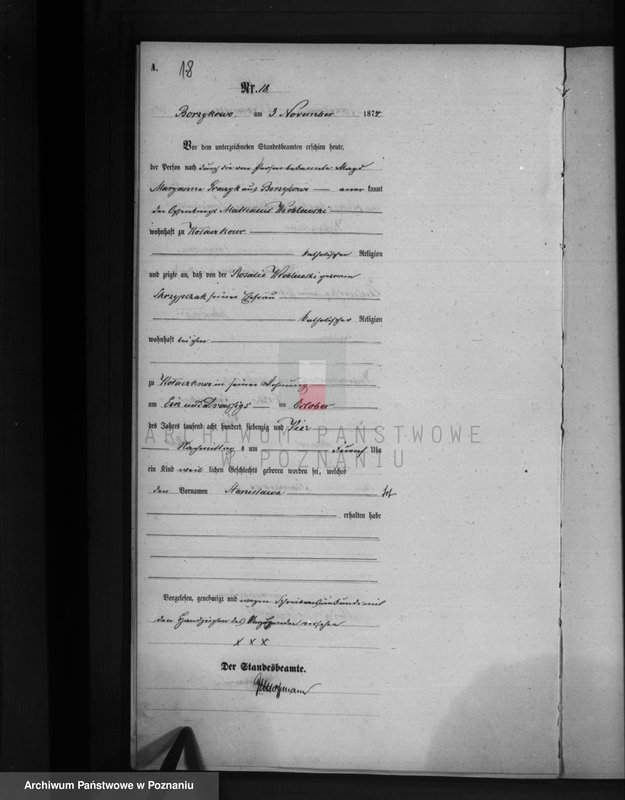 A.
18
Nr. 18.
Borzykowo am 3 November 1874.
Vor dem unterzeichneten Standesbeamten erschien heute,
der Person nach durch die von Person bekannte Magd
Maryanna aus Borzykowo anerkannt
der Mathaeus Wroblewski
wohnhaft zu Kołaczkowo
katholischer Religion
und zeigte an, daß von der Rosalie Wroblewski geborene
Skrzypczak seiner Ehefrau
katholischer Religion
wohnhaft bei ihm
zu Kołaczkowo in seiner Wohnung
am Ein und Dreißigs im October
des Jahrs tausend acht hundert siebenzig und Vier
Nachmittags um Uhr
ein Kind weiblichen Geschlechts geboren worden sei, welches
den Vornamen Stanislawa
erhalten habe
Vorgelesen, genehmigt und wegen Schreibensunkunde mit
den Handzeichen des versehen
x x x
Der Standesbeamte.
ARCHIWUM PAŃSTWOWE
W POZNANIU
Archiwum Państwowe w Poznaniu